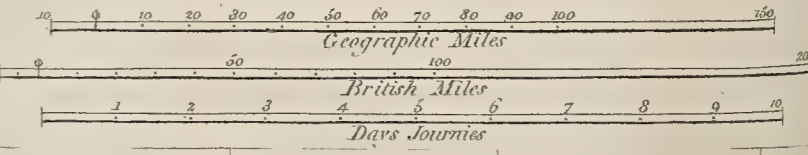 10 0 10 20 30 40 50 60 70 80 90 100 150
Geographic Miles
0 50 100 20
British Miles
1 2 3 4 5 6 7 8 9 10
Days Journies